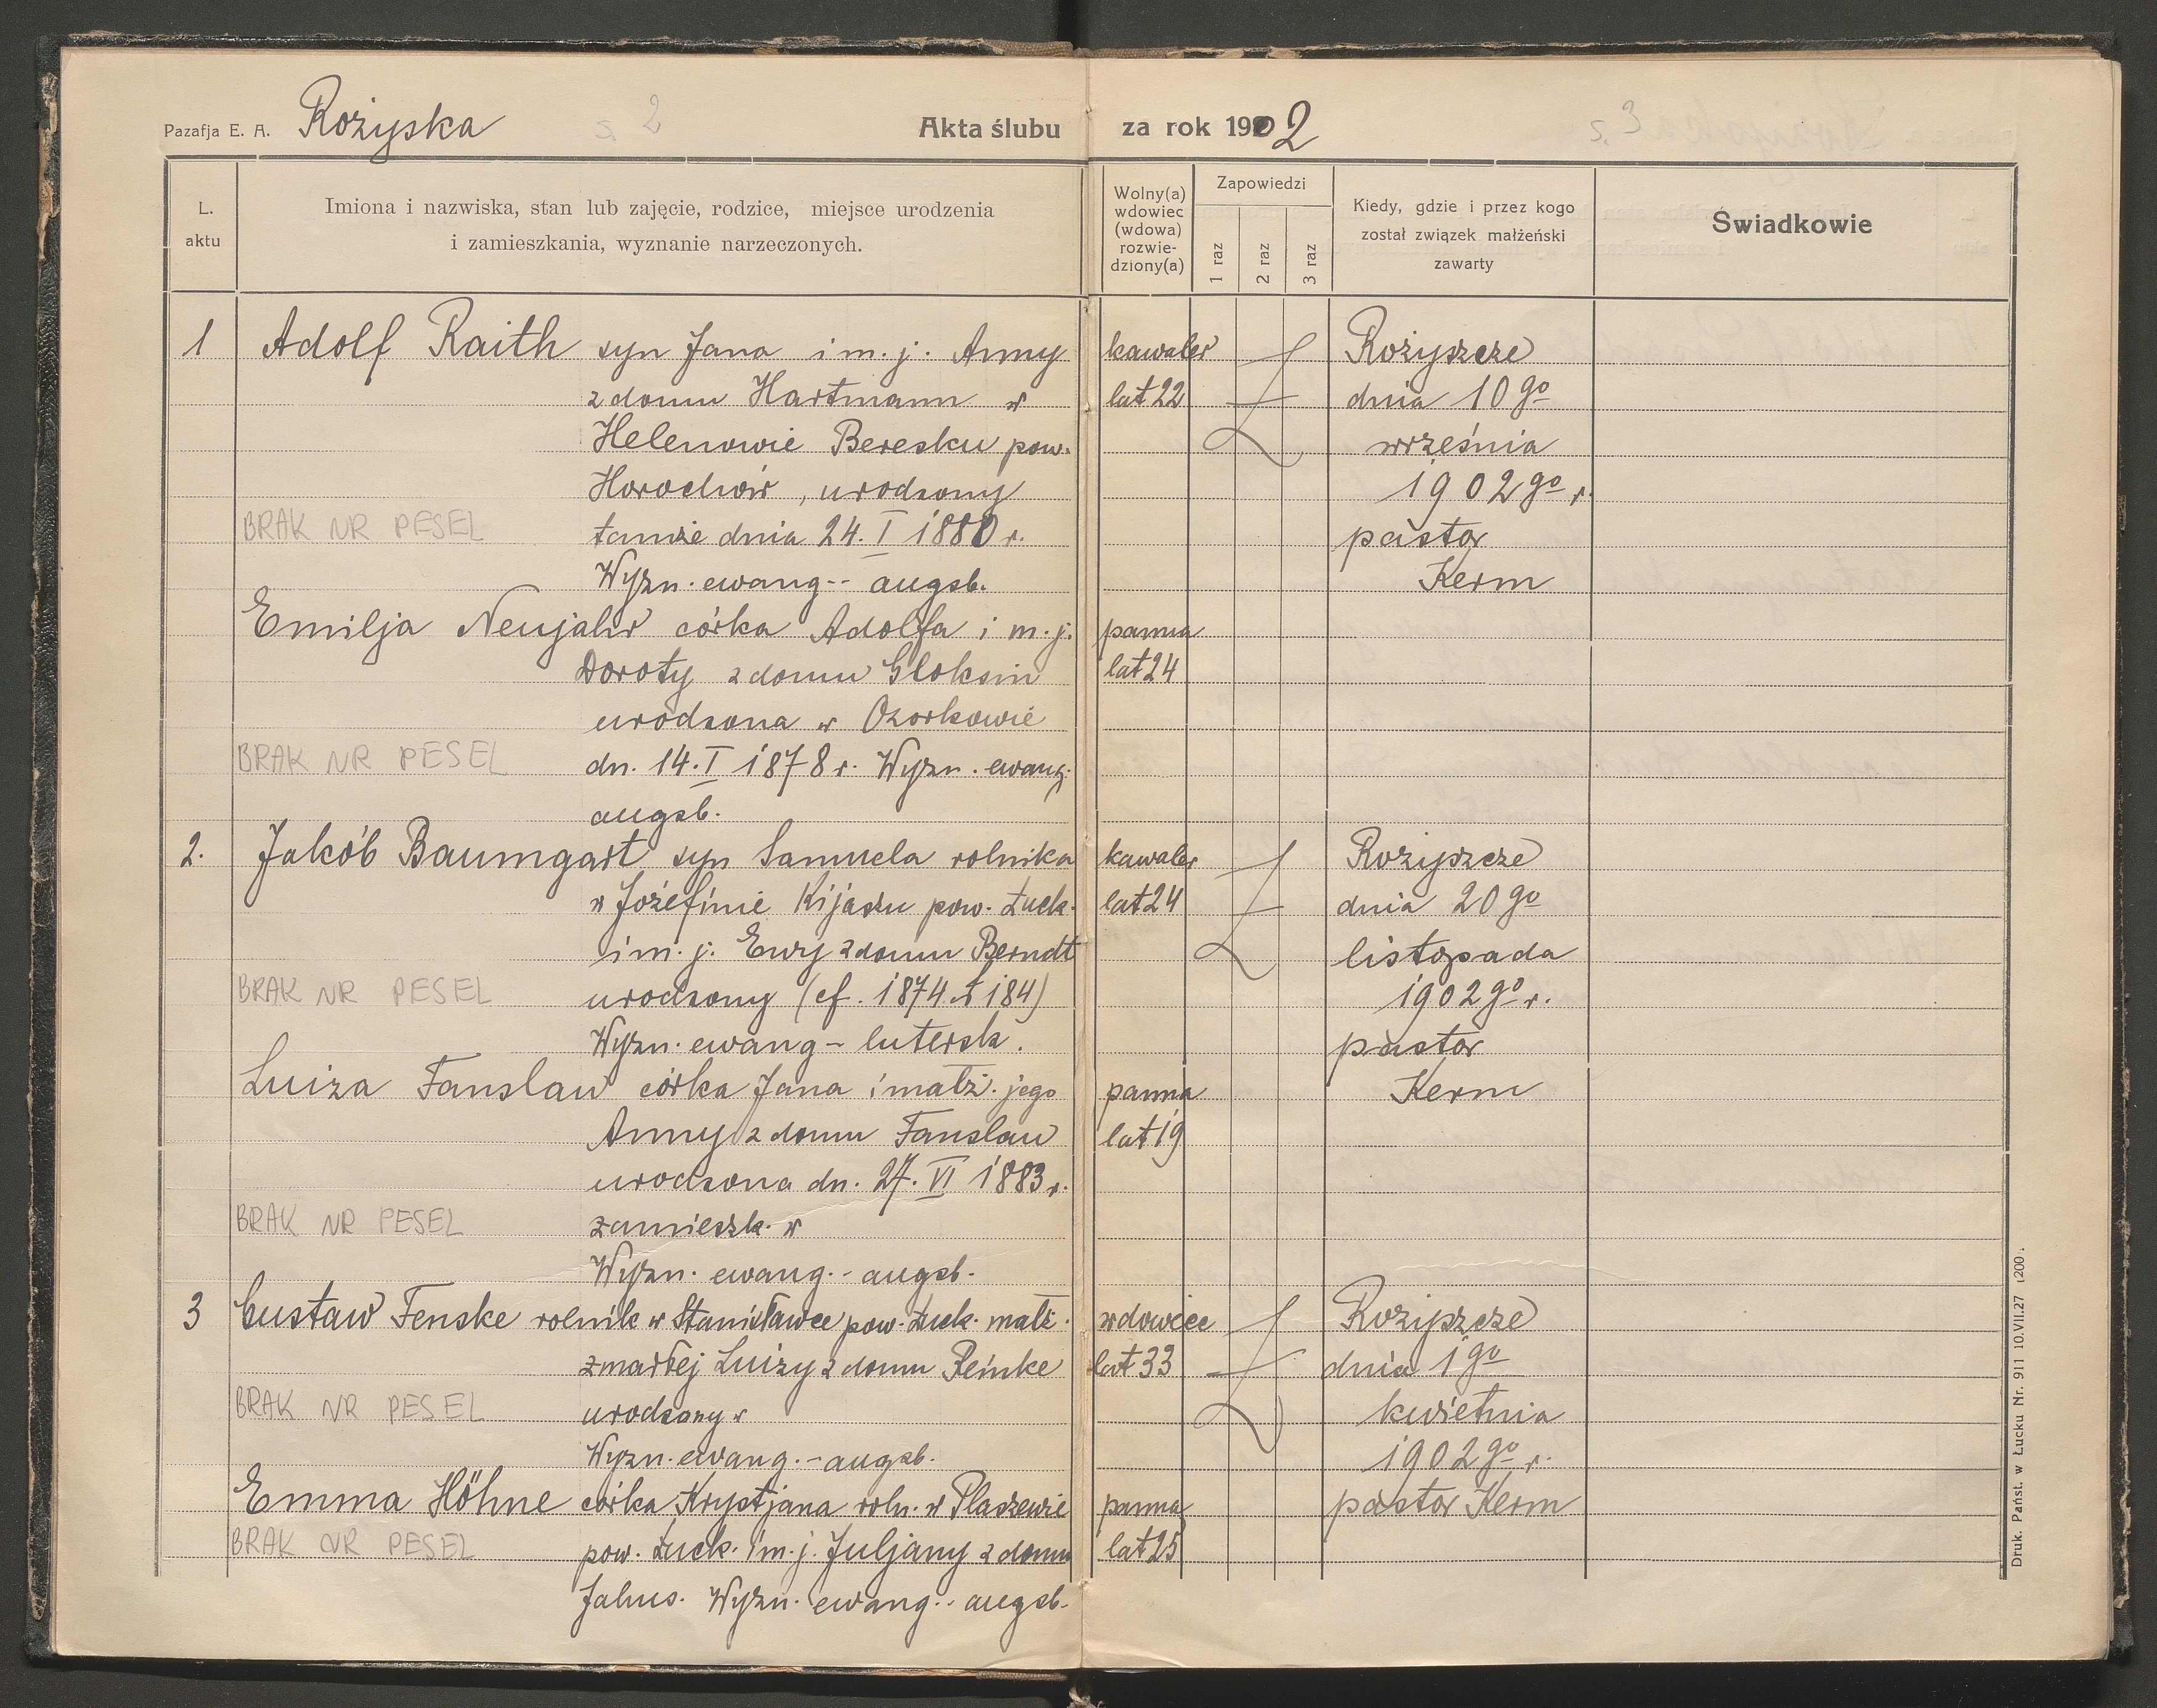 Pazafja E. A. Rożyska s. 2 Akta ślubu za rok 1902 s. 3
L. aktu
Imiona i nazwiska, stan lub zajęcie, rodzice, miejsce urodzenia
i zamieszkania, wyznanie narzeczonych.
Wolny(a)
wdowiec
(wdowa)
rozwie-
dziony(a)
Zapowiedzi
1 raz
2 raz
3 raz
Kiedy, gdzie i przez kogo
został związek małżeński
zawarty
Świadkowie
1 Adolf Raith syn Jana i m. j. Anny
z domu Hartmann w
Helenowie Beresku pow.
Horochów, urodzony
BRAK NR PESEL tamże dnia 24. I 1880 r.
Wyzn. ewang.- augsb.
kawaler
lat 22
Rożyszcze
dnia 10 go
września
1902 go r.
pastor
Kerm
Emilja Neujahr córka Adolfa i m. j.
Doroty z domu Gloksin
urodzona w Ozorkowie
BRAK NR PESEL dn. 14. I 1878 r. Wyzn. ewang.
augsb.
panna
lat 24
2. Jakób Baumgart syn Samuela rolnika
w Józefinie Kijaszu pow. Łuck.
i m. j. Ewy z domu Berndt
BRAK NR PESEL urodzony (cf. 1874 184)
Wyzn. ewang - lutersk.
kawaler
lat 24
Rożyszcze
dnia 20 go
listopada
1902 go r.
pastor
Kerm
Luiza Fanslau córka Jana i małż. jego
Anny z domu Fanslau
urodzona dn. 27. VI 1883 r.
BRAK NR PESEL zamieszk. w
Wyzn. ewang.- augsb.
panna
lat 19
3 Gustaw Fenske rolnik w Stanisławce pow. Łuck. małż.
zmarłej Luizy z domu Reinke
BRAK NR PESEL urodzony w
Wyzn. ewang.- augsb.
wdowiec
lat 33
Rożyszcze
dnia 1 go
kwietnia
1902 go r.
pastor Kerm
Emma Höhne córka Krystjana roln. w Płaszewie
BRAK NR PESEL pow. Łuck. i m. j. Juljany z domu
Jahns. Wyzn. ewang.- augsb.
panna
lat 25
Druk. Państ. w Łucku Nr. 911 10.VII.27 1200.